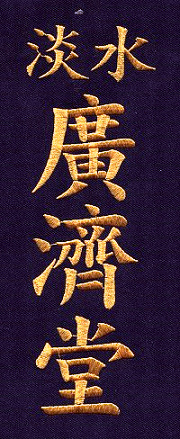 淡水
廣濟堂